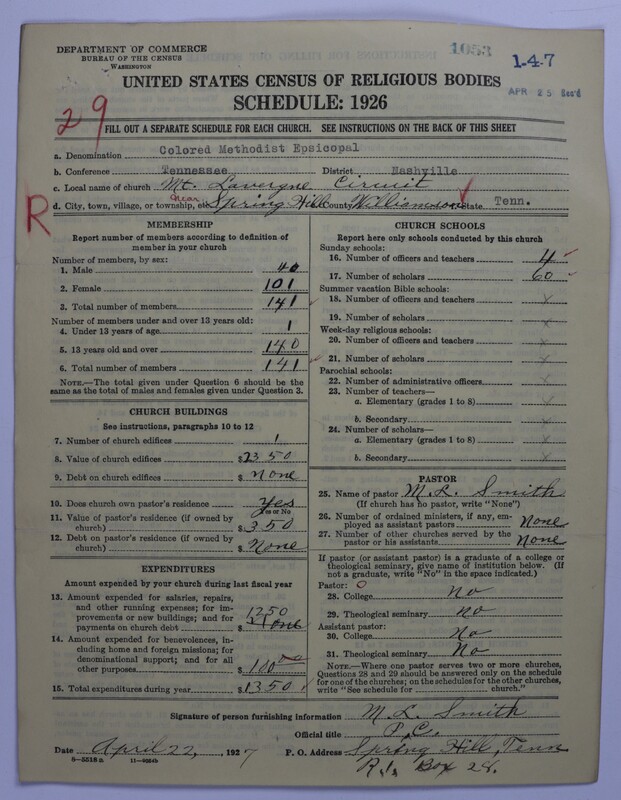 DEPARTMENT OF COMMERCE
BUREAU OF THE CENSUS
WASHINGTON
1053
1-4-7
APR 25 Rec'd
UNITED STATES CENSUS OF RELIGIOUS BODIES
SCHEDULE: 1926
29
FILL OUT A SEPARATE SCHEDULE FOR EACH CHURCH. SEE INSTRUCTIONS ON THE BACK OF THIS SHEET
a. Denomination Colored Methodist Epsicopal
b. Conference Tennessee District Nashville
c. Local name of church Mt. Lavergne Circuit
d. City, town, village, or township, etc. Near Spring Hill County Williamson State Tenn.
R
MEMBERSHIP
Report number of members according to definition of member in your church
Number of members, by sex:
1. Male 40
2. Female 101
3. Total number of members 141
Number of members under and over 13 years old:
4. Under 13 years of age 1
5. 13 years old and over 140
6. Total number of members 141
NOTE.—The total given under Question 6 should be the same as the total of males and females given under Question 3.
CHURCH BUILDINGS
See instructions, paragraphs 10 to 12
7. Number of church edifices 1
8. Value of church edifices $2350
9. Debt on church edifices $ None
10. Does church own pastor's residence Yes
Yes or No
11. Value of pastor's residence (if owned by church) $350
12. Debt on pastor's residence (if owned by church) $ None
EXPENDITURES
Amount expended by your church during last fiscal year
13. Amount expended for salaries, repairs, and other running expenses; for improvements or new buildings; and for payments on church debt $ 1250 None
14. Amount expended for benevolences, including home and foreign missions; for denominational support; and for all other purposes $100.00
15. Total expenditures during year $1350
CHURCH SCHOOLS
Report here only schools conducted by this church
Sunday schools:
16. Number of officers and teachers 4
17. Number of scholars 60
Summer vacation Bible schools:
18. Number of officers and teachers x
19. Number of scholars x
Week-day religious schools:
20. Number of officers and teachers x
21. Number of scholars x
Parochial schools:
22. Number of administrative officers x
23. Number of teachers—
a. Elementary (grades 1 to 8) x
b. Secondary x
24. Number of scholars—
a. Elementary (grades 1 to 8) x
b. Secondary x
PASTOR
25. Name of pastor M. L. Smith
(If church has no pastor, write "None")
26. Number of ordained ministers, if any, employed as assistant pastors None
27. Number of other churches served by the pastor or his assistants None
If pastor (or assistant pastor) is a graduate of a college or theological seminary, give name of institution below. (If not a graduate, write "No" in the space indicated.)
Pastor: O
28. College No
29. Theological seminary No
Assistant pastor:
30. College No
31. Theological seminary No
NOTE.—Where one pastor serves two or more churches, Questions 28 and 29 should be answered only on the schedule for one of the churches; on the schedules for the other churches, write "See schedule for church."
Signature of person furnishing information M. L. Smith
Official title P. C.
Date April 22, 1927 P. O. Address Spring Hill, Tenn
R. 1, Box 28.
8—5518 a 11—9264b